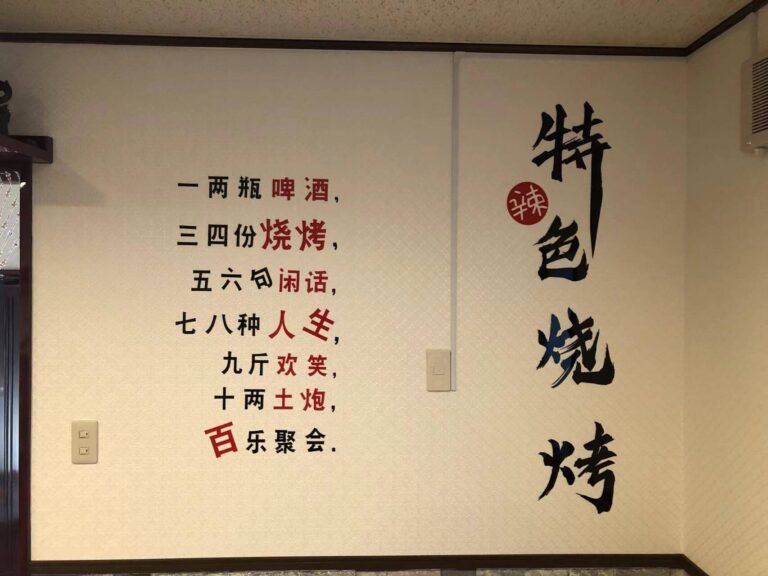 一两瓶啤酒,
三四份烧烤,
五六句闲话,
七八种人生,
九斤欢笑,
十两土炮,
百乐聚会.
特色烧烤
辣